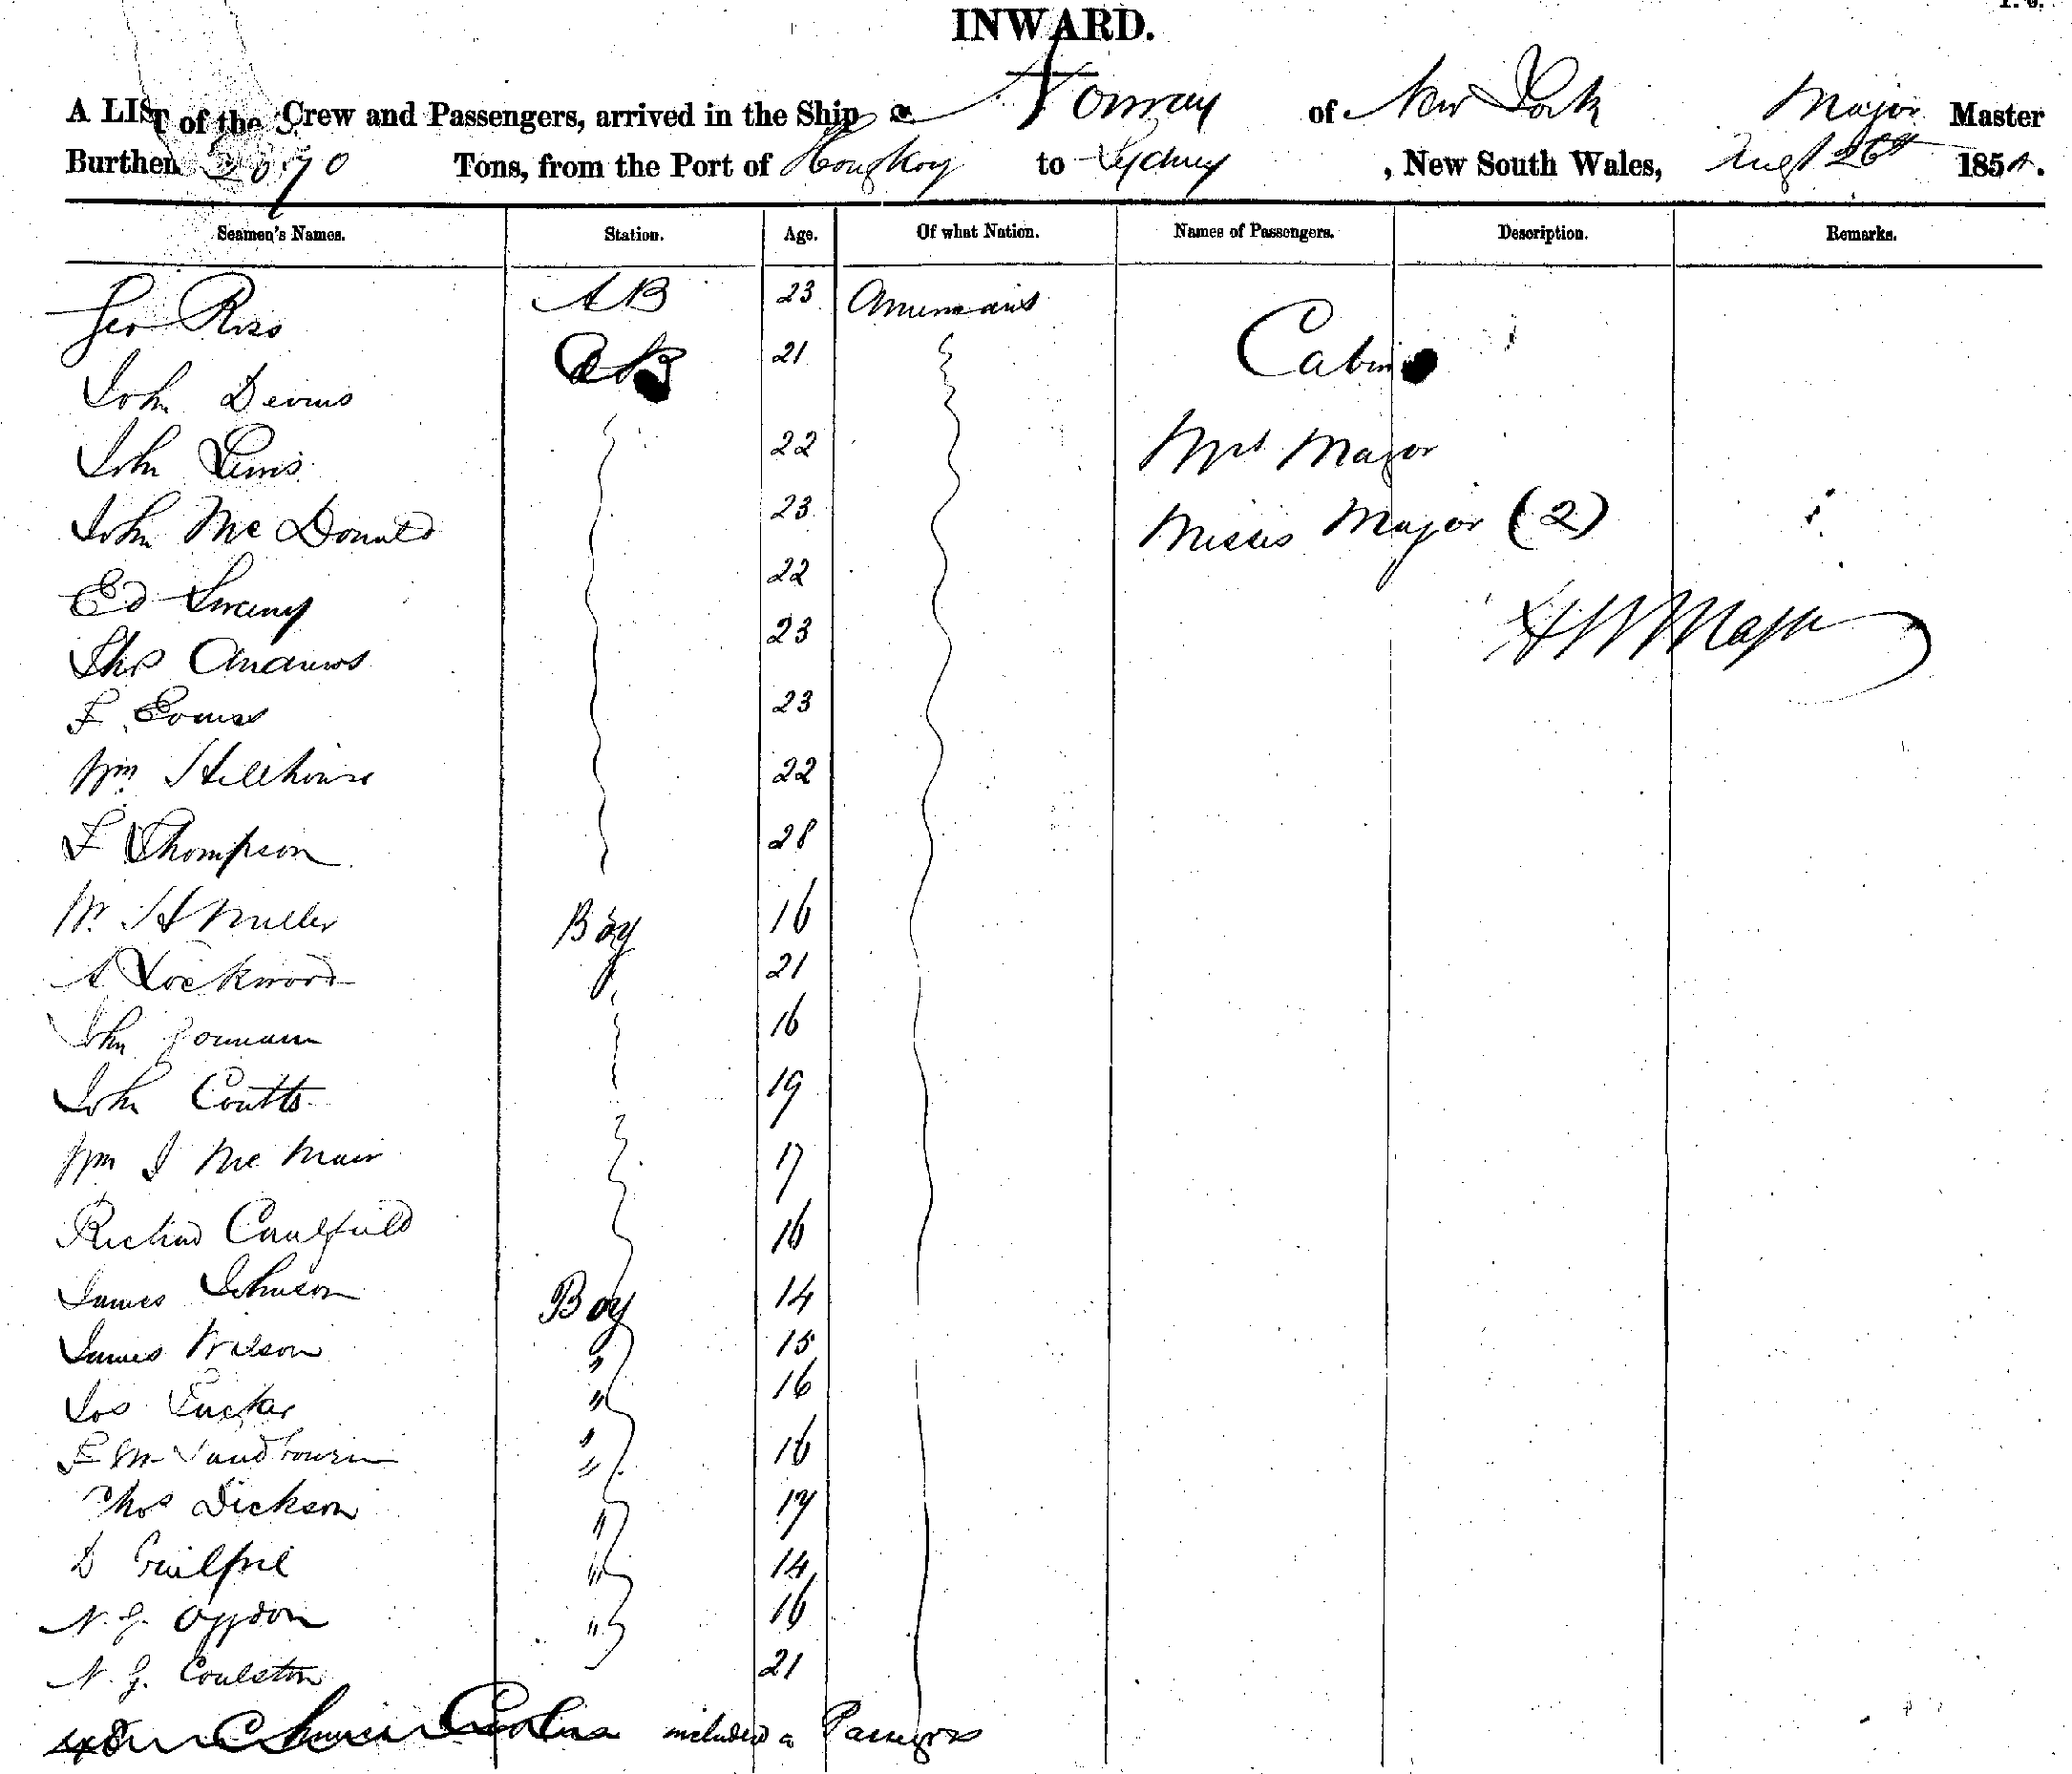 INWARD.
A LIST of the Crew and Passengers, arrived in the Ship of New York Major Master
Burthen 2070 Tons, from the Port of Hongkong to Sydney, New South Wales, Augt 26th 185
Seamen's Names. Station. Age. Of what Nation. Names of Passengers. Description. Remarks.
Geo Ross AB 23 Americans
John 21 Cabin
John Lewis 22 Mrs Major
John McDonald 23 Misses Major (2)
Ed Sweeny 22
Thos Andrews 23 H W Major
F Evans 23
Wm Hillhouse 22
F Thompson 28
W. H Miller Boy 16
A Lockwood 21
John Gorman 16
John Coutts 19
Wm J Mc 17
Richard Caulfield 16
James Johnson Boy 14
James Wilson " 15
Jos Tucker " 16
E M " 16
Thos Dickson " 17
D " 14
N. G. Ogdon " 16
N. G. Coulston 21
included as Passengers